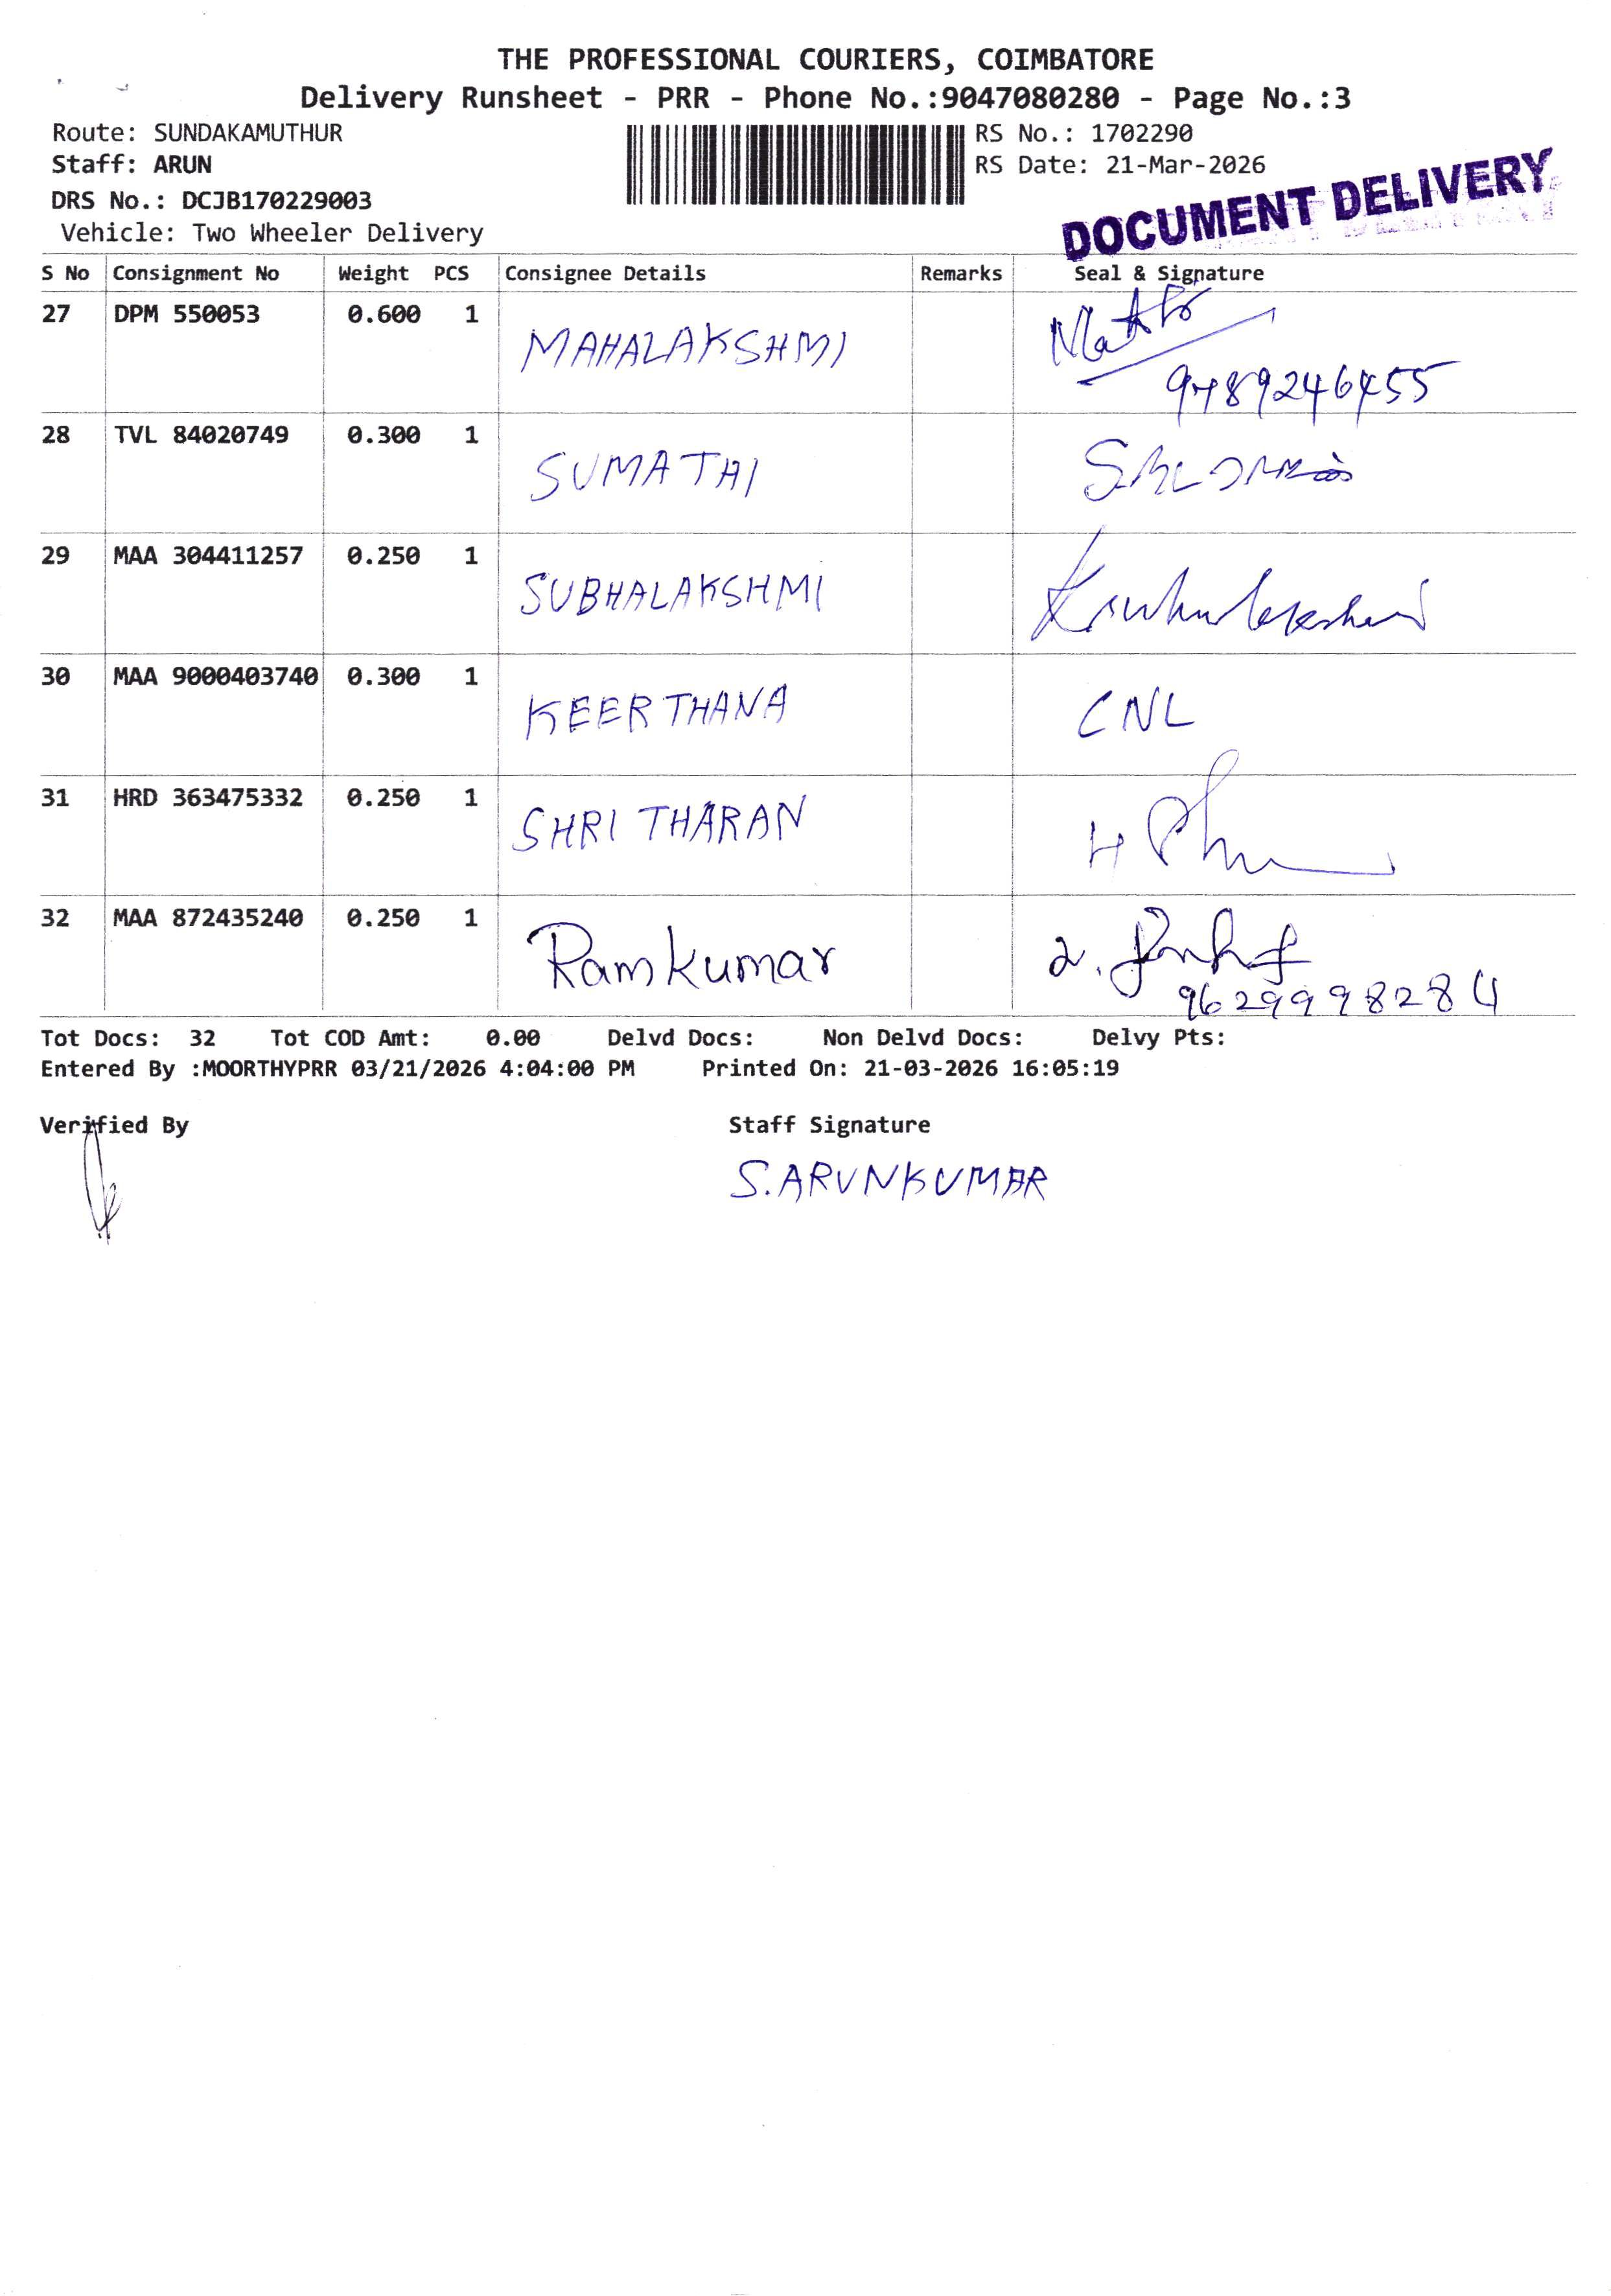 THE PROFESSIONAL COURIERS, COIMBATORE
Delivery Runsheet - PRR - Phone No.:9047080280 - Page No.:3
Route: SUNDAKAMUTHUR RS No.: 1702290
Staff: ARUN RS Date: 21-Mar-2026
DRS No.: DCJB170229003
DOCUMENT DELIVERY
Vehicle: Two Wheeler Delivery
S No Consignment No Weight PCS Consignee Details Remarks Seal & Signature
27 DPM 550053 0.600 1 MAHALAKSHMI
9489246455
28 TVL 84020749 0.300 1 SUMATHI
29 MAA 304411257 0.250 1 SUBHALAKSHMI
30 MAA 9000403740 0.300 1 KEERTHANA CNL
31 HRD 363475332 0.250 1 SHRI THARAN
32 MAA 872435240 0.250 1 Ramkumar
9629998284
Tot Docs: 32 Tot COD Amt: 0.00 Delvd Docs: Non Delvd Docs: Delvy Pts:
Entered By :MOORTHYPRR 03/21/2026 4:04:00 PM Printed On: 21-03-2026 16:05:19
Verified By Staff Signature
S.ARUNKUMAR